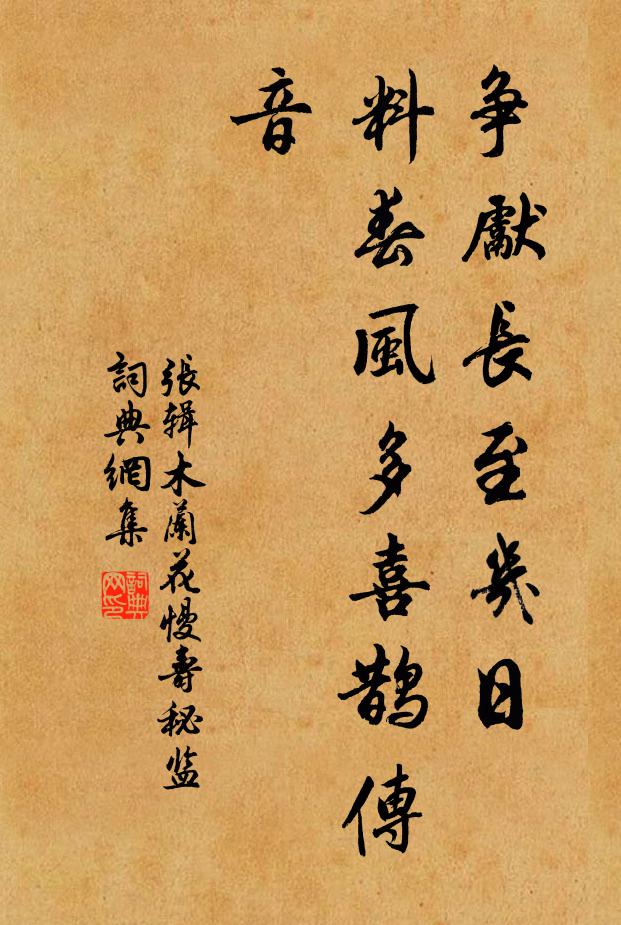 争獻長至幾日
料春風多喜鵲傳
音
張辑木蘭花慢壽秘监
詞典網集
詞典
网印